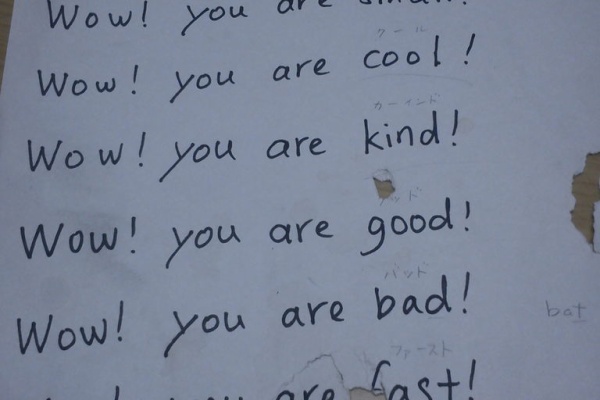 Wow! you are
クール
Wow! you are cool!
カーインド
Wow! you are kind!
ッド
Wow! you are good!
バッド
Wow! you are bad! bat
ファースト
you are fast!